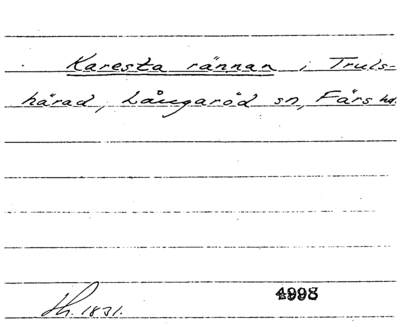 Karesta rännan i Truls-
härad, Långaröd sn, Färs hd.
lh. 1831. 4998